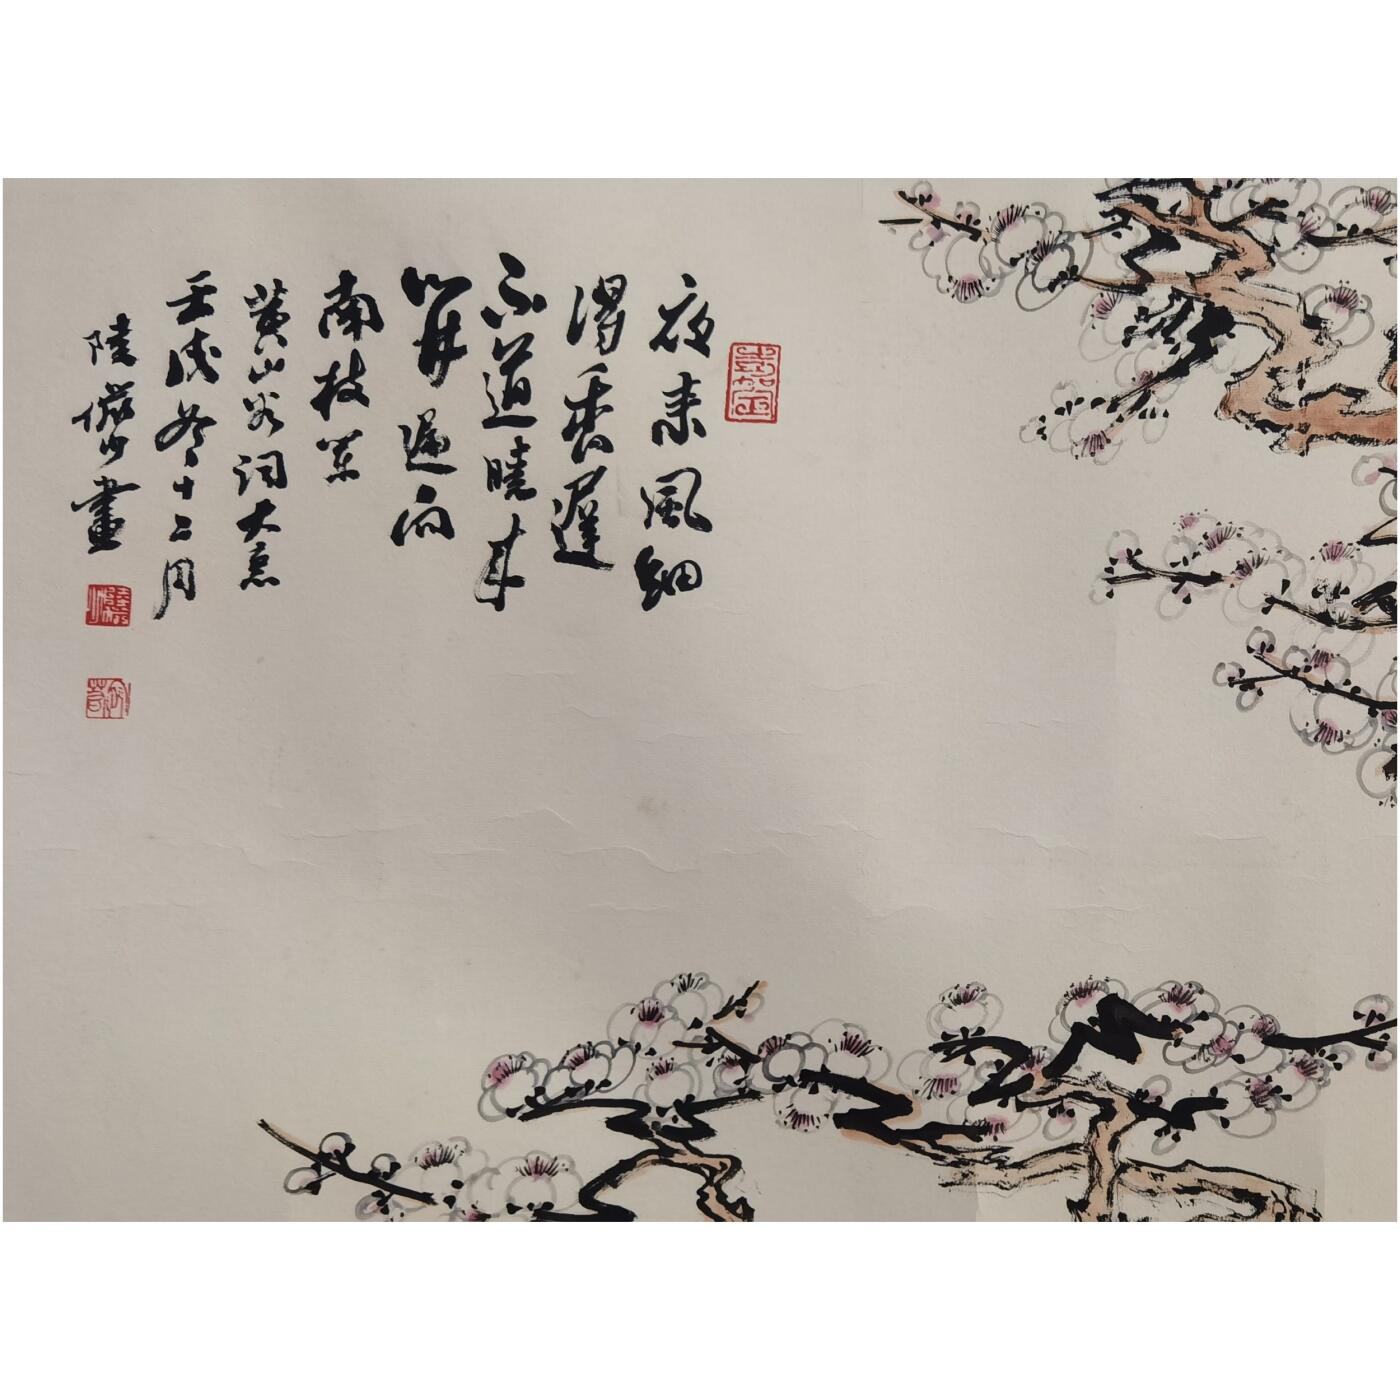 夜來風細
得香遲
不道曉來
開遍向
南枝
黃山谷詞大意
壬戌冬十二月
陸儼少畫